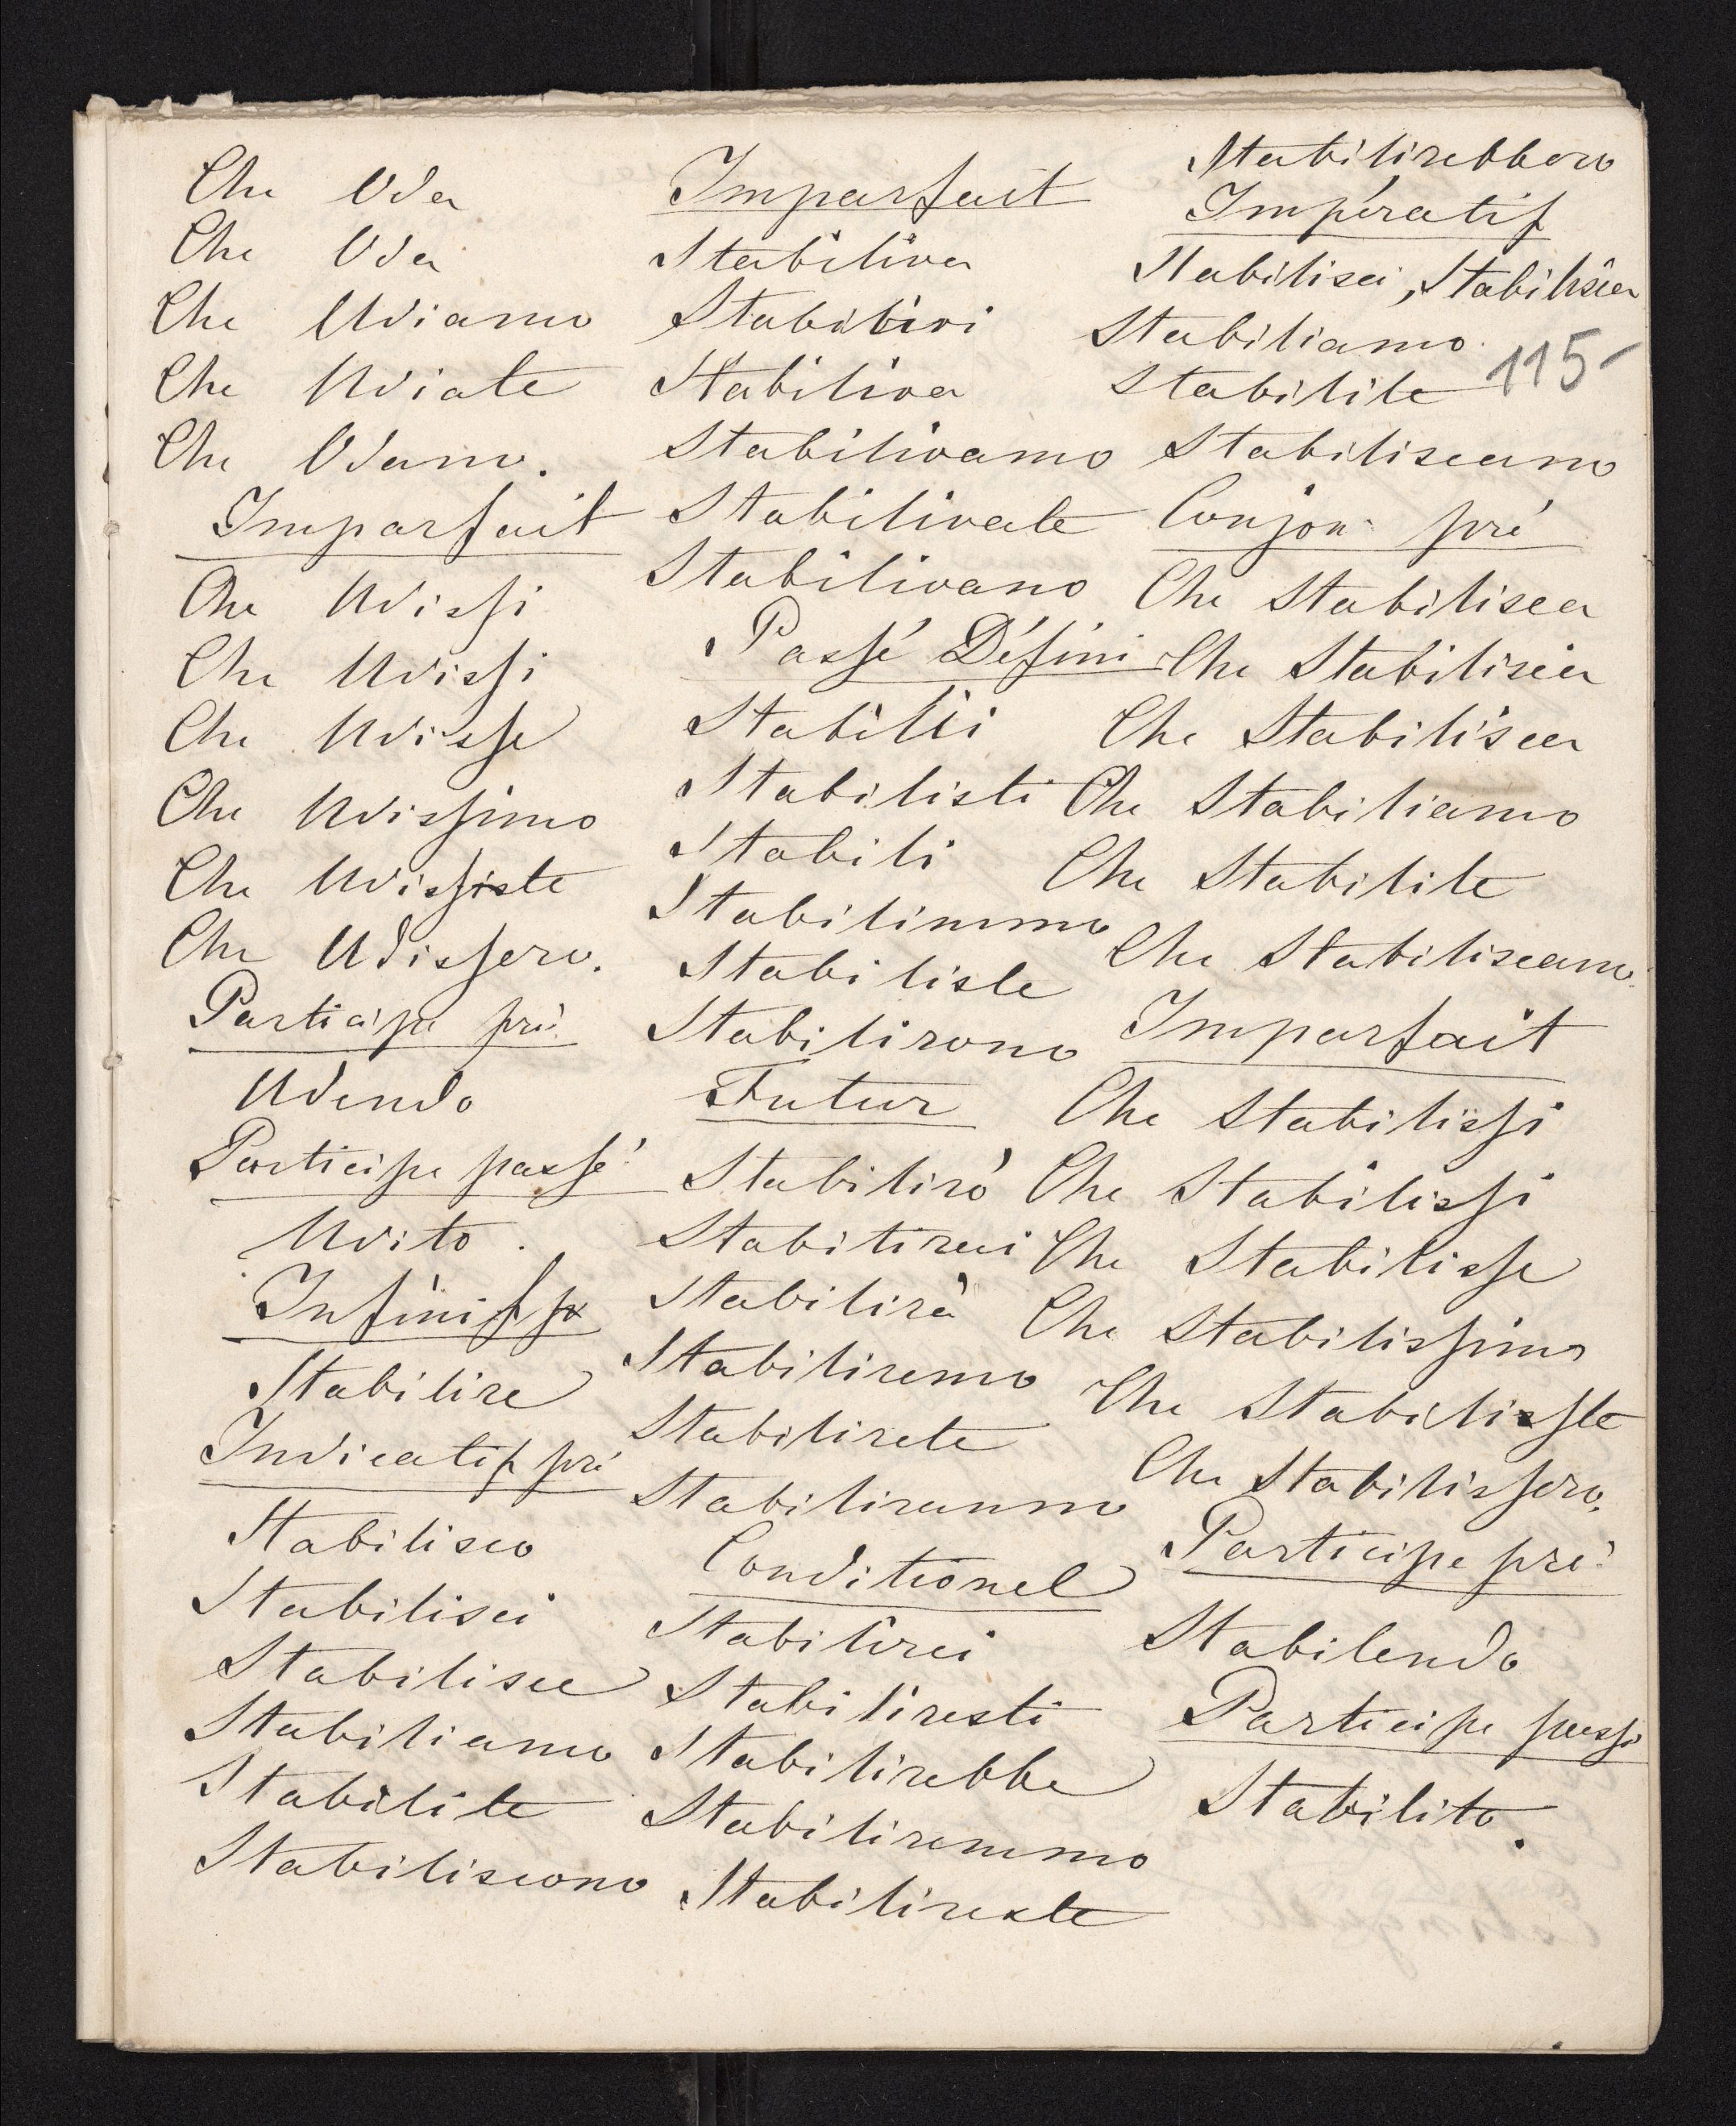 Che Oda
Che Oda
Che Udiamo
Che Udiate
Che Odano.
Imparfait
Che Udissi
Che Udissi
Che Udisse
Che Udissimo
Che Udissiste
Che Udissero.
Participe pré
Udendo
Participe passé
Udito.
Infinif
Stabilire
Indicatif pré
Stabilisco
Stabilisci
Stabilisce
Stabiliamo
Stabilite
Stabiliscono
Imparfait
Stabiliva
Stabilivi
Stabiliva
Stabilivamo
Stabilivate
Stabilivano
Passé Défini
Stabilii
Stabilisti
Stabili
Stabilimmo
Stabiliste
Stabilirono
Futur
Stabilirò
Stabilirai
Stabilirà
Stabiliremo
Stabilirete
Stabiliranno
Conditionel
Stabilirei
Stabiliresti
Stabilirebbe
Stabiliremmo
Stabilireste
Stabilirebbero
Impératif
Stabilisci, Stabilisca
Stabiliamo
115
Stabilite
Stabiliscano
Conjon pré
Che Stabilisca
Che Stabilisca
Che Stabilisca
Che Stabiliamo
Che Stabilite
Che Stabiliscano
Imparfait
Che Stabilissi
Che Stabilissi
Che Stabilisse
Che Stabilissimo
Che Stabilisste
Che Stabilissero.
Participe pré
Stabilendo
Participe passé
Stabilito.